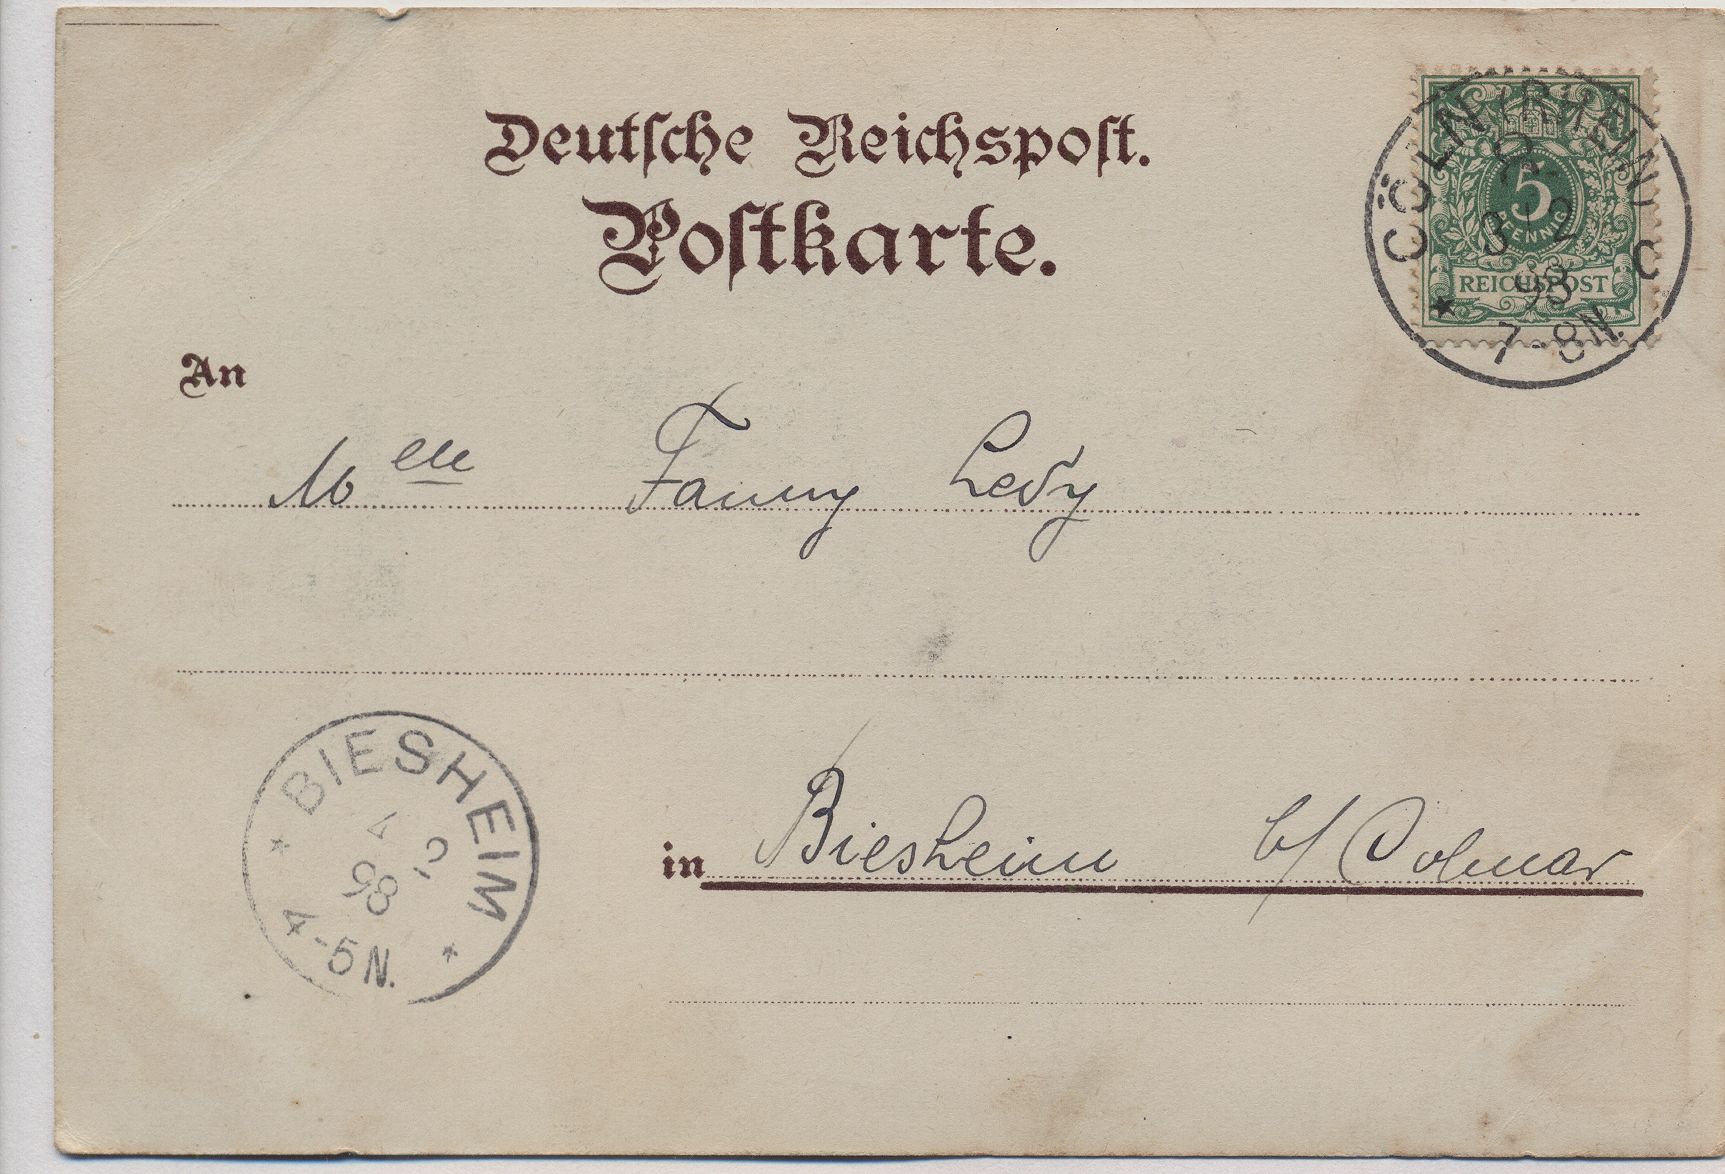 Deutsche Reichspost.
Postkarte.
CÖLN (RHEIN)
* 2. C
3 2
98
7-8N.
5
PFENNIG
REICHSPOST
An
Melle Fanny Levy
in Biesheim b/ Colmar
* BIESHEIM *
4 2
98
4-5N.